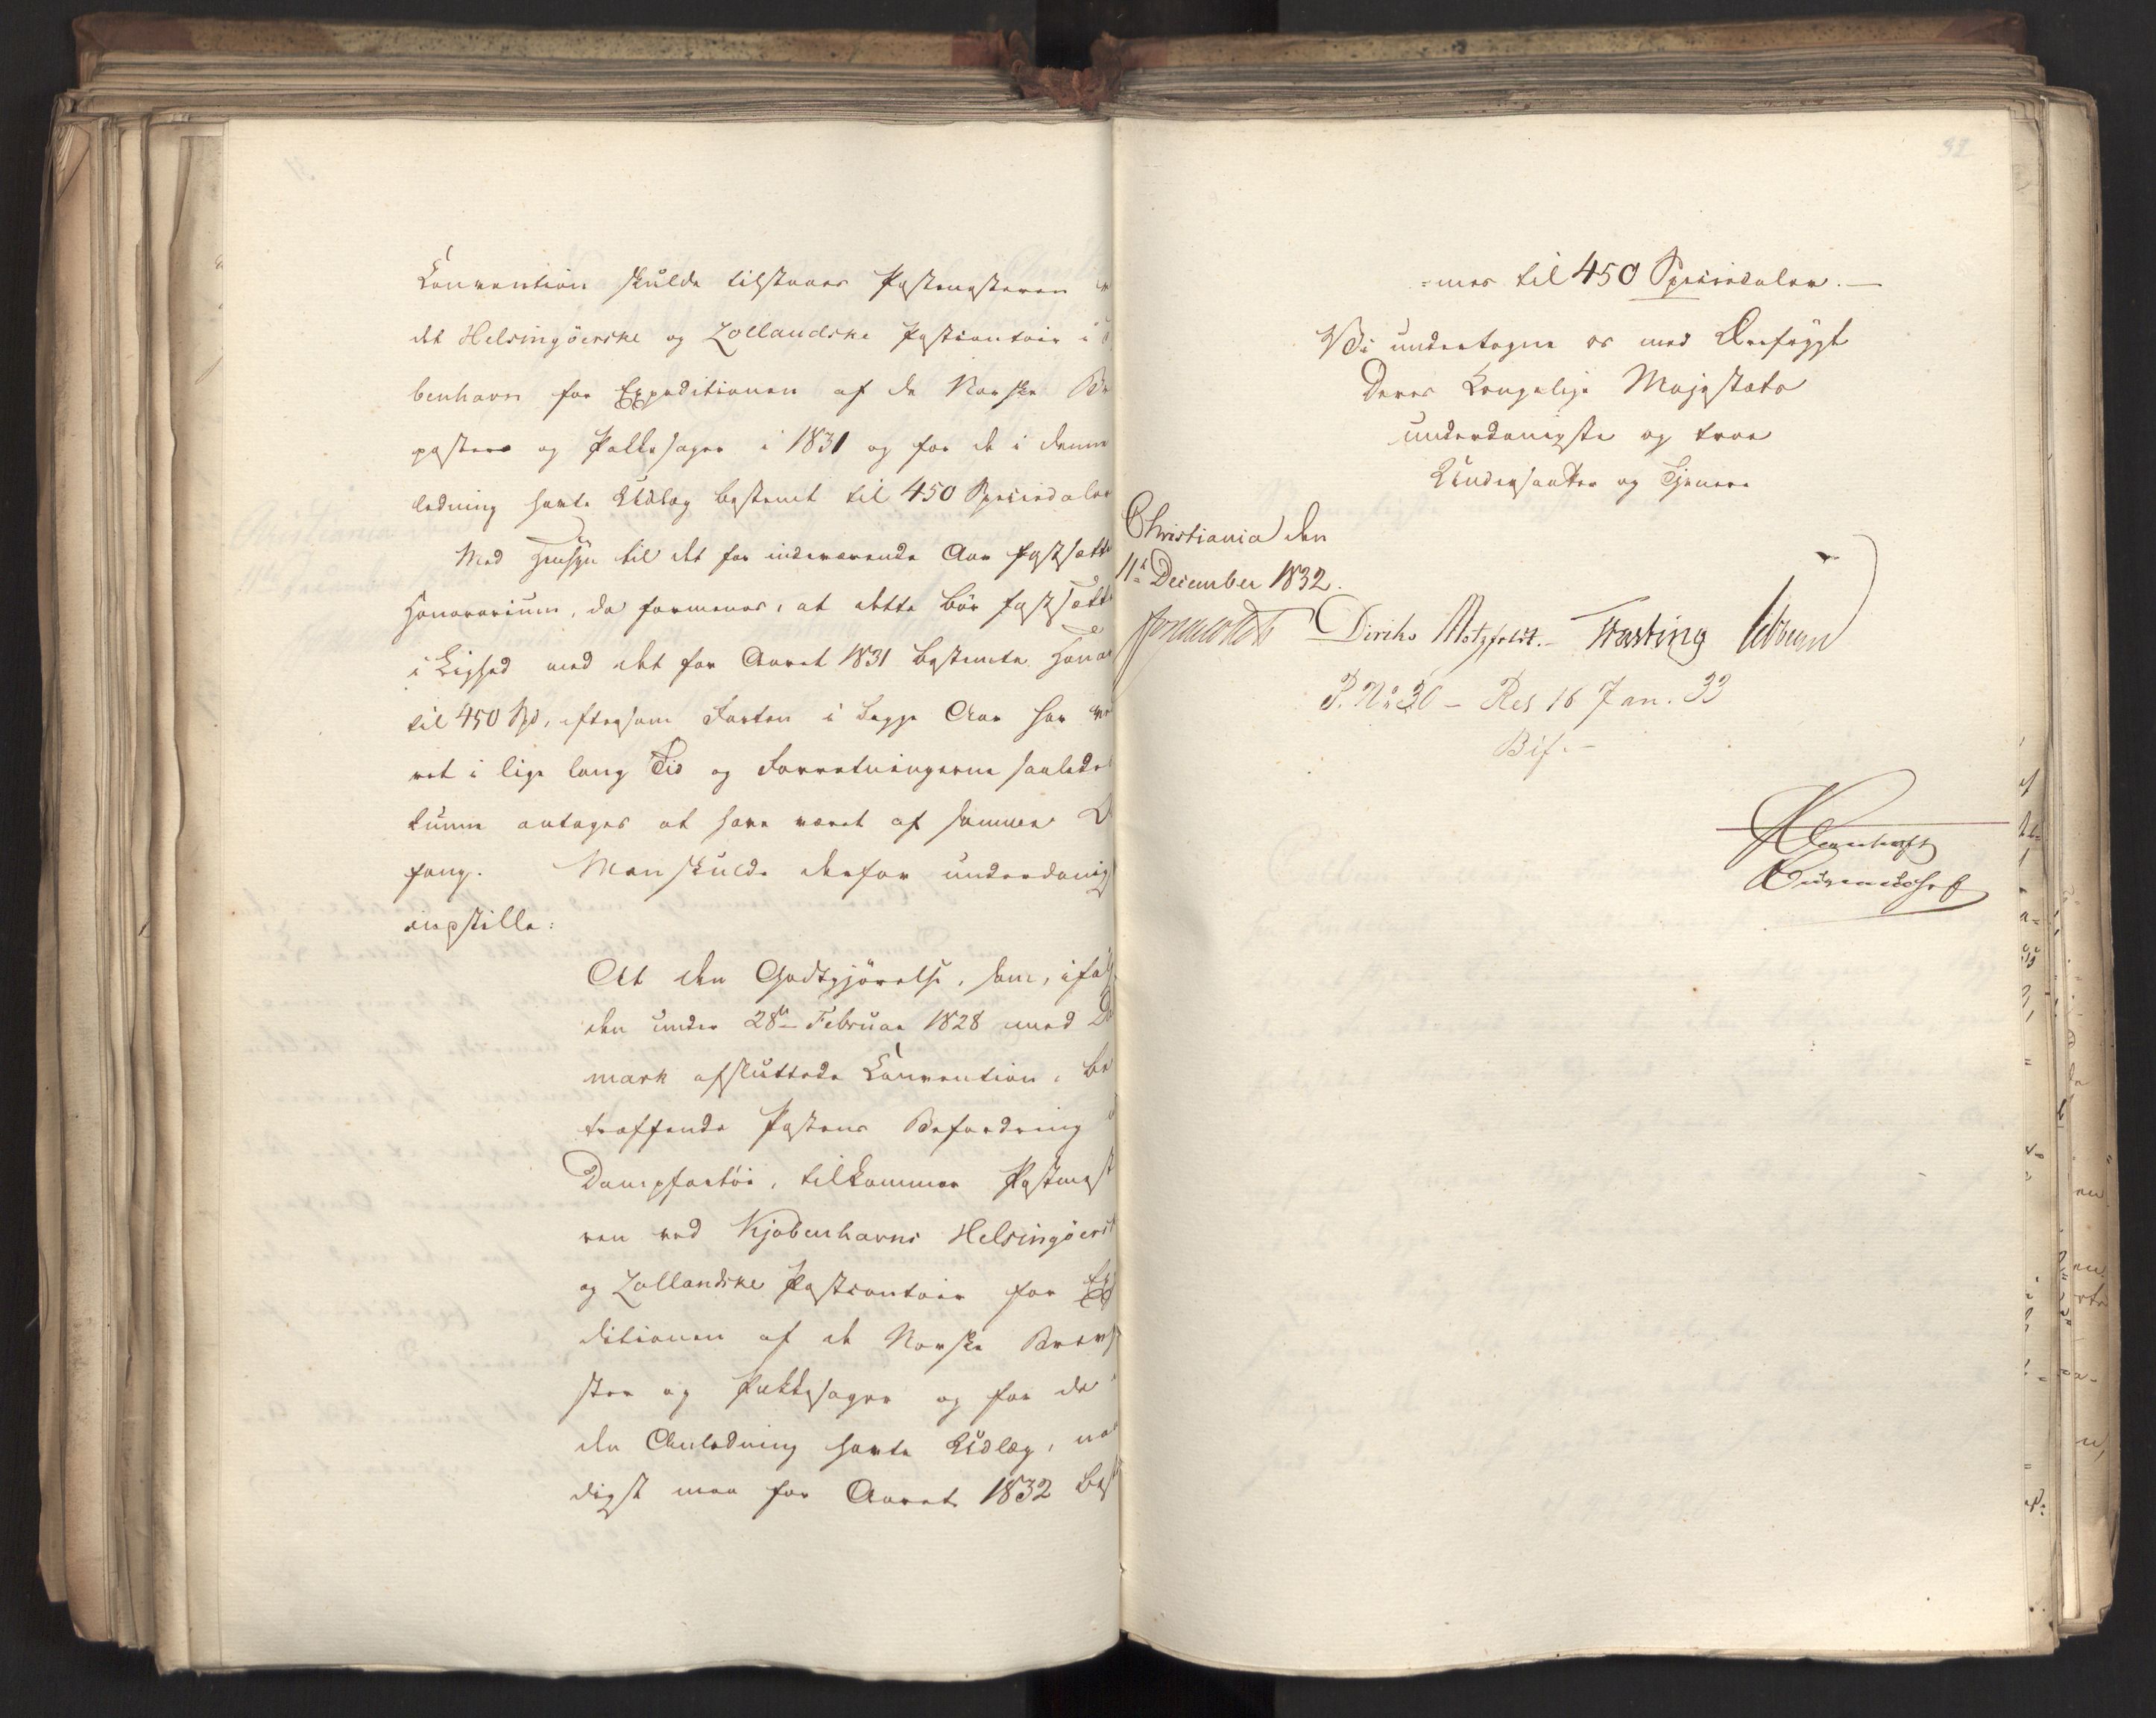 Convention skulde tilstaaes Postmesteren
det Helsingöerske og Lollandske Postcontoir i
benhavn for Expeditionen af de Norske
poster og Pakkesager i 1831 og for de i denne
ledning havte Udlæg bestemt til 450 Speciedaler
Med Hensyn til det for indeværende Aar fastsatte
Honorarium, da formenes, at dette bör fastsætte
i Lighed med det for Aaret 1831 bestemte Honor
til 450 Spd, eftersom Farten i begge Aar har væ
ret i lige lang Tid og Forretningerne saaledes
kunne antages at have været af samme
fang. Man skulde derfor underdanigst
indstille:
At den Godtgjörelse, som, ifölge
den under 28de Februar 1828 med
mark afsluttede Convention, be
træffende Postens Befordring
Dampfartöi, tilkommer Postmest
ren ved Kjöbenhavns Helsingöersk
og Lollandske Postcontoir for Exp
ditionen af de Norske Brevpo
ster og Pakkesager og for de
den Anledning havte Udlæg, naa
digst maa for Aaret 1832 best
92
=mes til 450 Speciedaler.—
Vi undertegne os med Ærefrygt
Deres Kongelige Majestæts
underdanigste og troe
Undersaatter og Tjenere
Christiania den
11te December 1832.
Diriks Motzfeldt.— Fasting
P. No 30 – Res 16 Jan. 33
Bif.—